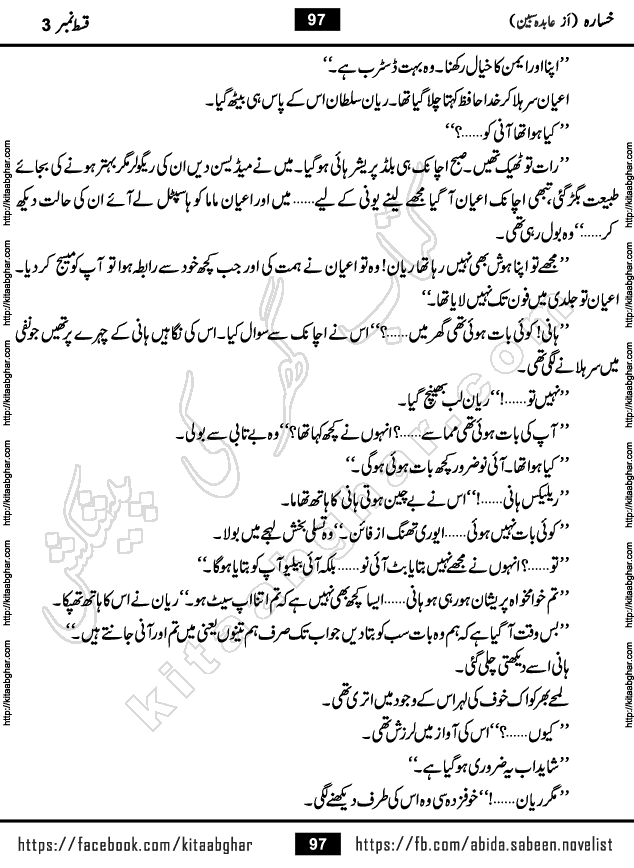 خسارہ (از عابدہ سبین)
97
قسط نمبر 3
’’اپنا اور ایمن کا خیال رکھنا۔ وہ بہت ڈسٹرب ہے۔‘‘
اعیان سر ہلا کر خدا حافظ کہتا چلا گیا تھا۔ ریان سلطان اس کے پاس ہی بیٹھ گیا۔
’’کیا ہوا تھا آنی کو......؟‘‘
’’رات تو ٹھیک تھیں۔ صبح اچانک ہی بلڈ پریشر ہائی ہوگیا۔ میں نے میڈیسن دیں ان کی ریگولر مگر بہتر ہونے کی بجائے
طبیعت بگڑ گئی، تبھی اچانک اعیان آ گیا مجھے لینے یونی کے لیے...... میں اور اعیان ماما کو ہاسپٹل لے آئے ان کی حالت دیکھ
کر......‘‘ وہ بول رہی تھی۔
’’مجھے تو اپنا ہوش بھی نہیں رہا تھا ریان! وہ تو اعیان نے ہمت کی اور جب کچھ خود سے رابطہ ہوا تو آپ کو میسج کر دیا۔
اعیان تو جلدی میں فون تک نہیں لایا تھا۔‘‘
’’ہانی! کوئی بات ہوئی تھی گھر میں......؟‘‘ اس نے اچانک سے سوال کیا۔ اس کی نگاہیں ہانی کے چہرے پر تھیں جو نفی
میں سر ہلانے لگی تھی۔
’’نہیں تو......!‘‘ ریان لب بھینچ گیا۔
’’آپ کی بات ہوئی تھی مما سے......؟ انہوں نے کچھ کہا تھا؟‘‘ وہ بے تابی سے بولی۔
’’کیا ہوا تھا۔ آئی نو ضرور کچھ بات ہوئی ہوگی۔‘‘
’’ریلیکس ہانی......!‘‘ اس نے بے چین ہوتی ہانی کا ہاتھ تھاما۔
’’کوئی بات نہیں ہوئی......ایوری تھنگ از فائن۔‘‘ وہ تسلی بخش لہجے میں بولا۔
’’تو......؟ انہوں نے مجھے نہیں بتایا بٹ آئی نو...... بلکہ آئی بیلیو آپ کو بتایا ہوگا۔‘‘
’’تم خوامخواہ پریشان ہو رہی ہو ہانی......ایسا کچھ بھی نہیں ہے کہ تم اتنا اپ سیٹ ہو۔‘‘ ریان نے اس کا ہاتھ تھپکا۔
’’بس وقت آ گیا ہے کہ ہم وہ بات سب کو بتا دیں جو اب تک صرف ہم تینوں یعنی میں تم اور آنی جانتے ہیں۔‘‘
ہانی اسے دیکھتی چلی گئی
لمحے بھر کو اک خوف کی لہر اس کے وجود میں اتری تھی۔
’’کیوں......؟‘‘ اس کی آواز میں لرزش تھی۔
’’شاید اب یہ ضروری ہوگیا ہے۔‘‘
’’مگر ریان......!‘‘ خوفزدہ سی وہ اس کی طرف دیکھنے لگی۔
کتاب گھر کی پیشکش
kitaabghar.com
http://kitaabghar.com
http://kitaabghar.com
http://kitaabghar.com
http://kitaabghar.com
http://kitaabghar.com
http://kitaabghar.com
http://kitaabghar.com
http://kitaabghar.com
http://kitaabghar.com
http://kitaabghar.com
http://kitaabghar.com
http://kitaabghar.com
https://facebook.com/kitaabghar
97
https://fb.com/abida.sabeen.novelist